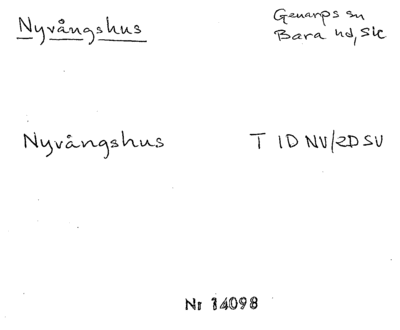 Nyvångshus
Genarps sn
Bara hd, Sk
Nyvångshus
T 1D NV/2D SV
Nr 14098